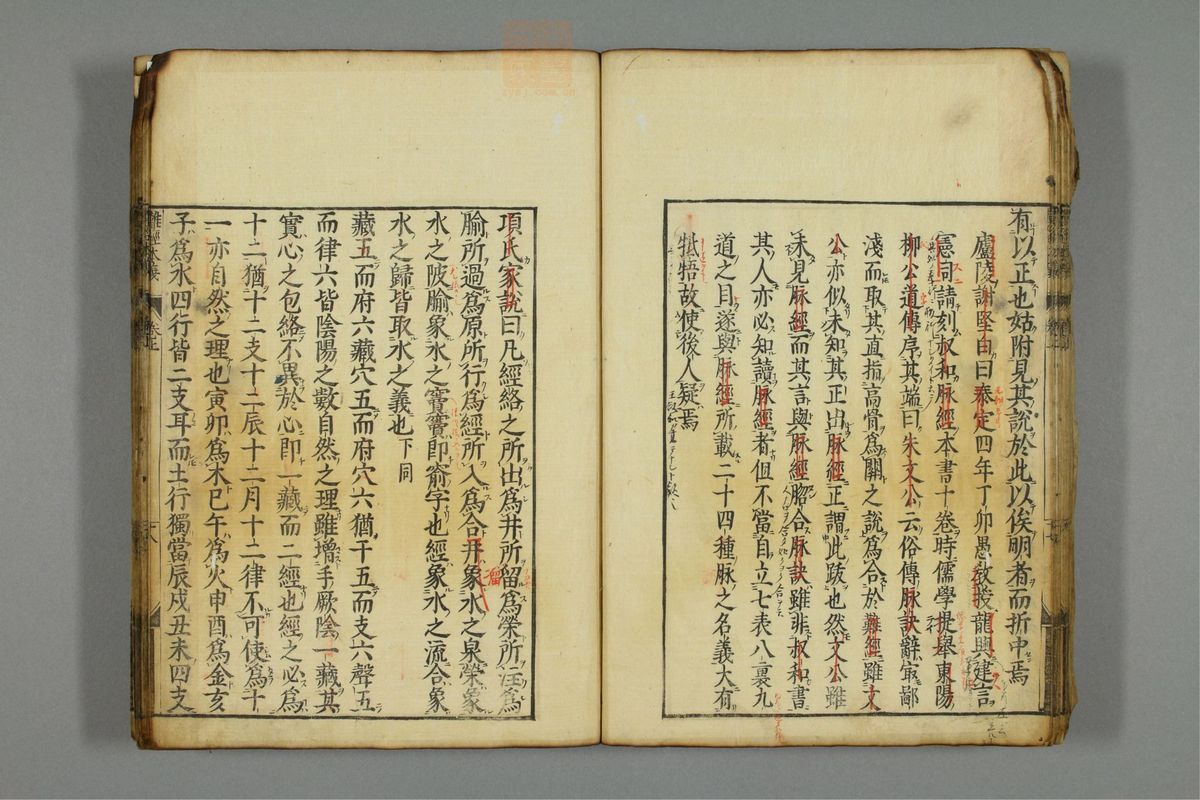 有以正也姑附見其說於此以俟明者而折中焉
廬陵謝堅白曰泰定四年丁卯愚教授龍興建言
憲司請刻叔和脉經本書十卷時儒學提舉東陽
柳公道傳序其端曰朱文公云俗傳脉訣辭最鄙
淺而取其直指高骨爲關之說爲合於難經雖文
公亦似未知其正出脉經正謂此跋也然文公雖
未見脉經而其言與脉經脗合脉訣雖非叔和書
其人亦必知讀脉經者但不當自立七表八裏九
道之目遂與脉經所載二十四種脉之名義大有
牴牾故使後人疑焉
項氏家說曰凡經絡之所出爲井所留爲榮所注爲
腧所過爲原所行爲經所入爲合井象水之泉榮象
水之陂腧象水之竇竇即窬字也經象水之流合象
水之歸皆取水之義也下同
藏五而府六藏穴五而府穴六猶干五而支六聲五
而律六皆陰陽之數自然之理雖增手厥陰一藏其
實心之包絡不異於心即一藏而二經也經之必爲
十二猶十二支十二辰十二月十二律不可使爲十
一亦自然之理也寅卯爲木巳午爲火申酉爲金亥
子爲水四行皆二支耳而土行獨當辰戌丑未四支